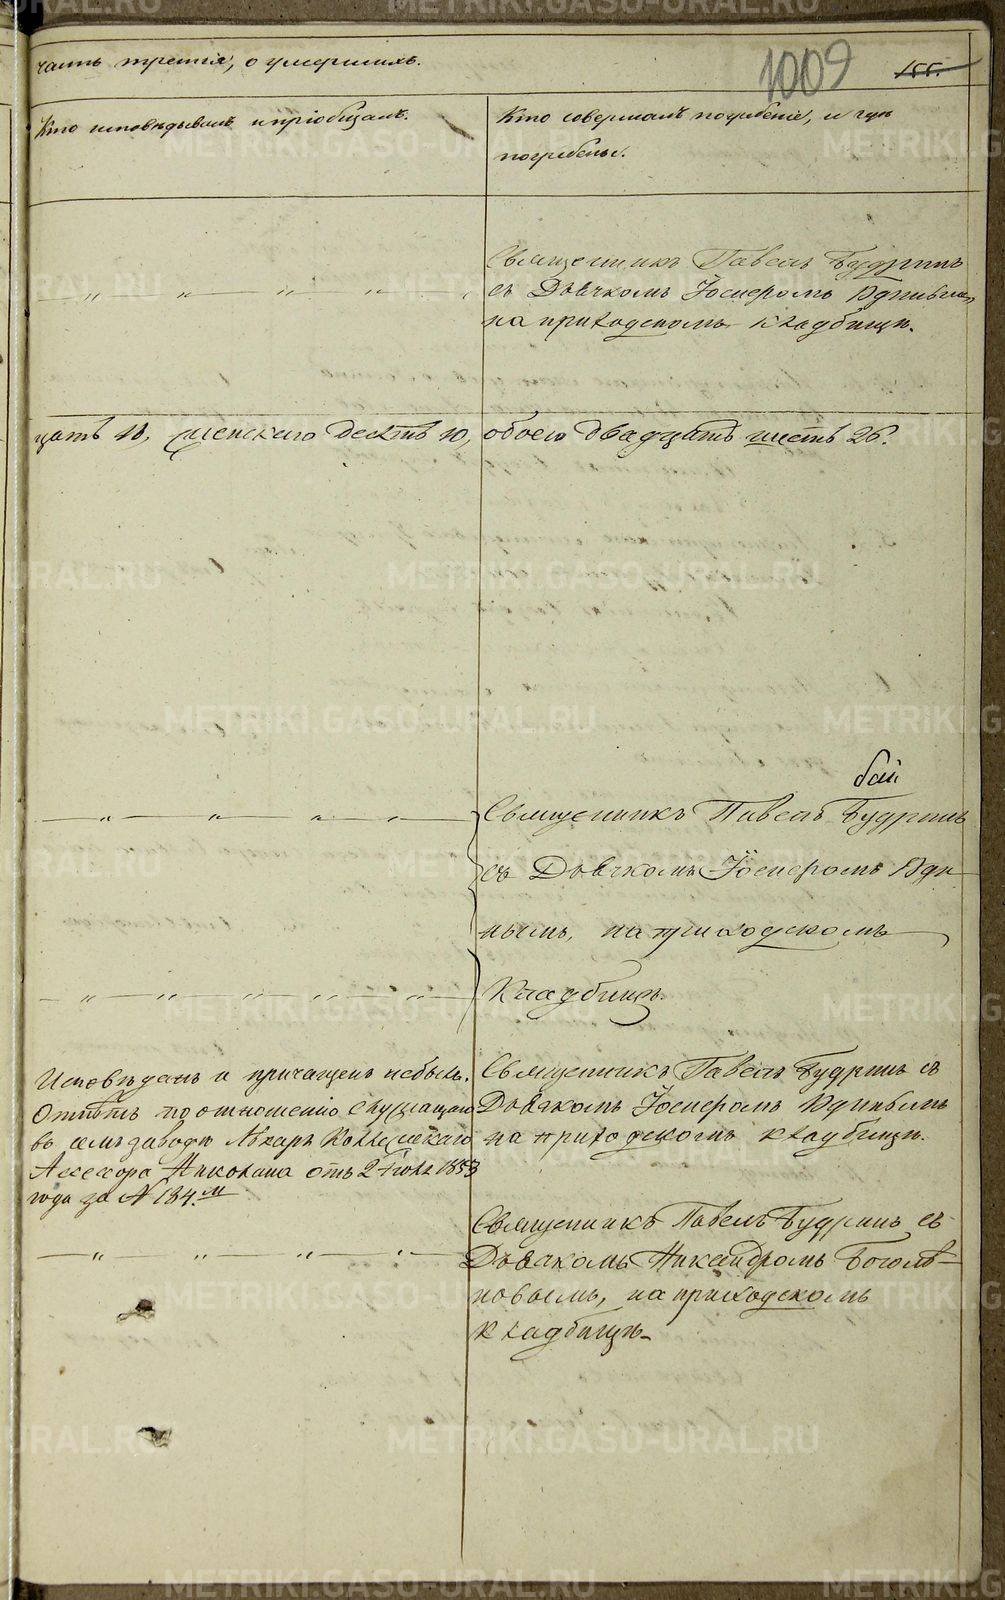 часть третія, о умершихъ.
1009
155.
Кто исповѣдывалъ и пріобщалъ.
Кто совершалъ погребеніе, и гдѣ
погребены.
Священникъ Павелъ Будринъ
съ Дьячкомъ Іосифомъ
на приходскомъ кладбищѣ.
цать 16, женскаго десять 10, обоего двадцать шесть 26.
Священникъ Павелъ Будринъ
съ Дьячкомъ Іосифомъ
нымъ, на приходскомъ
Кладбищѣ.
Исповѣданъ и причащенъ небылъ.
Отпѣтъ по отношенію служащаго
въ семъ заводѣ Лѣкаря Коллежскаго
Асессора Николая отъ 2 Іюля 1853
года за № 184.м
Священникъ Павелъ Будринъ съ
Дьячкомъ Іосифомъ
на приходскомъ кладбищѣ.
Священникъ Павелъ Будринъ съ
Дьячкомъ Никандромъ Боголѣ-
повымъ, на приходскомъ
кладбищѣ.
METRIKI.GASO-URAL.RU